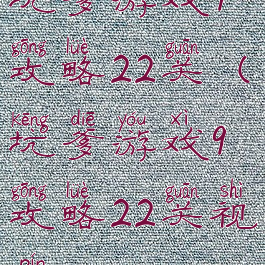 坑爹游戏9
gōng lüè guān
攻略22关（
kēng diē yóu xì
坑爹游戏9
gōng lüè guān shì
攻略22关视
pín